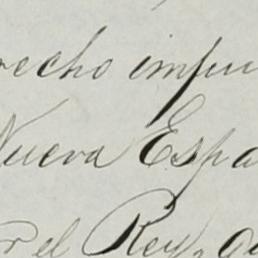 recho impu
Nueva Espa
r el Rey, qu